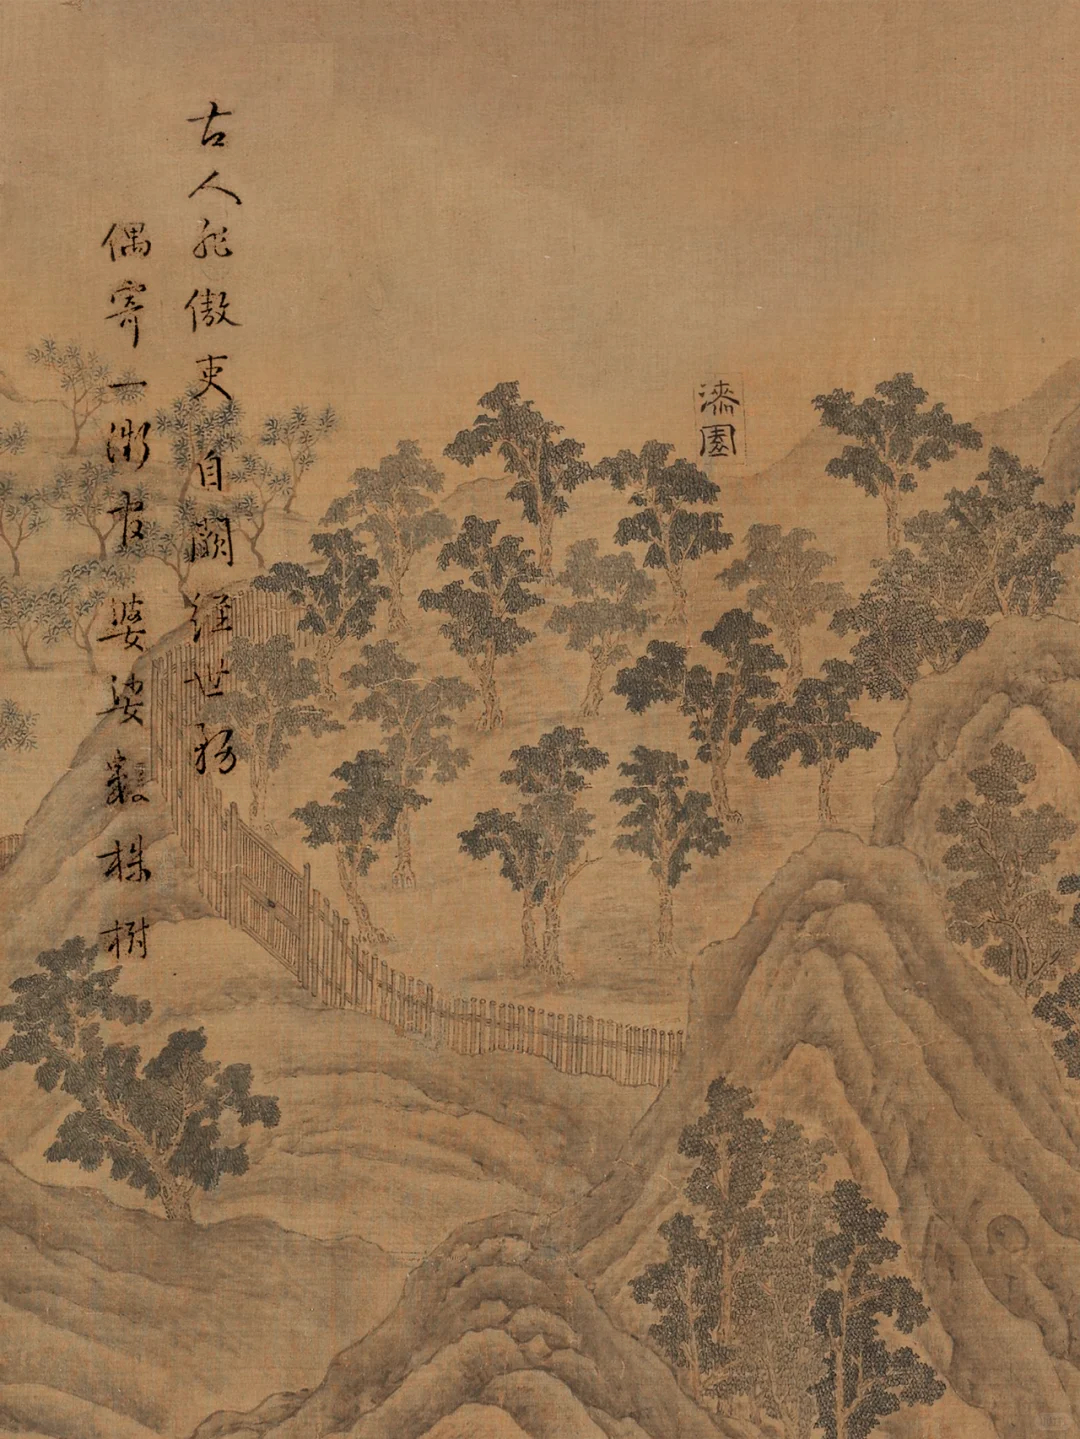 漆園
古人非傲吏自闕經世務
偶寄一微官婆娑數株樹